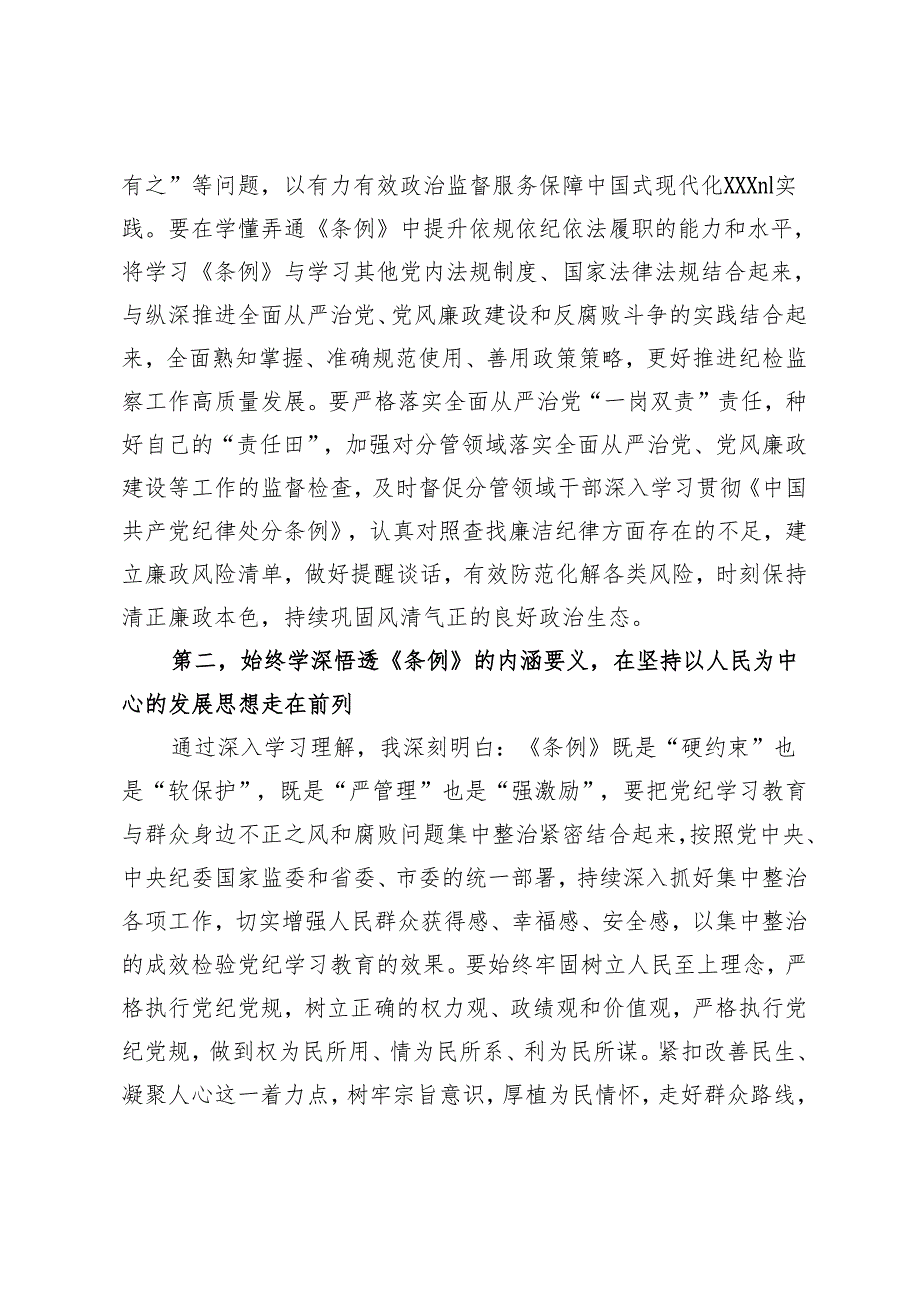 有之”等问题，以有力有效政治监督服务保障中国式现代化XXXnl实
践。要在学懂弄通《条例》中提升依规依纪依法履职的能力和水平，
将学习《条例》与学习其他党内法规制度、国家法律法规结合起来，
与纵深推进全面从严治党、党风廉政建设和反腐败斗争的实践结合起
来，全面熟知掌握、准确规范使用、善用政策策略，更好推进纪检监
察工作高质量发展。要严格落实全面从严治党“一岗双责”责任，种
好自己的“责任田”，加强对分管领域落实全面从严治党、党风廉政
建设等工作的监督检查，及时督促分管领域干部深入学习贯彻《中国
共产党纪律处分条例》，认真对照查找廉洁纪律方面存在的不足，建
立廉政风险清单，做好提醒谈话，有效防范化解各类风险，时刻保持
清正廉政本色，持续巩固风清气正的良好政治生态。
第二，始终学深悟透《条例》的内涵要义，在坚持以人民为中
心的发展思想走在前列
通过深入学习理解，我深刻明白：《条例》既是“硬约束”也
是“软保护”，既是“严管理”也是“强激励”，要把党纪学习教育
与群众身边不正之风和腐败问题集中整治紧密结合起来，按照党中央、
中央纪委国家监委和省委、市委的统一部署，持续深入抓好集中整治
各项工作，切实增强人民群众获得感、幸福感、安全感，以集中整治
的成效检验党纪学习教育的效果。要始终牢固树立人民至上理念，严
格执行党纪党规，树立正确的权力观、政绩观和价值观，严格执行党
纪党规，做到权为民所用、情为民所系、利为民所谋。紧扣改善民生、
凝聚人心这一着力点，树牢宗旨意识，厚植为民情怀，走好群众路线，